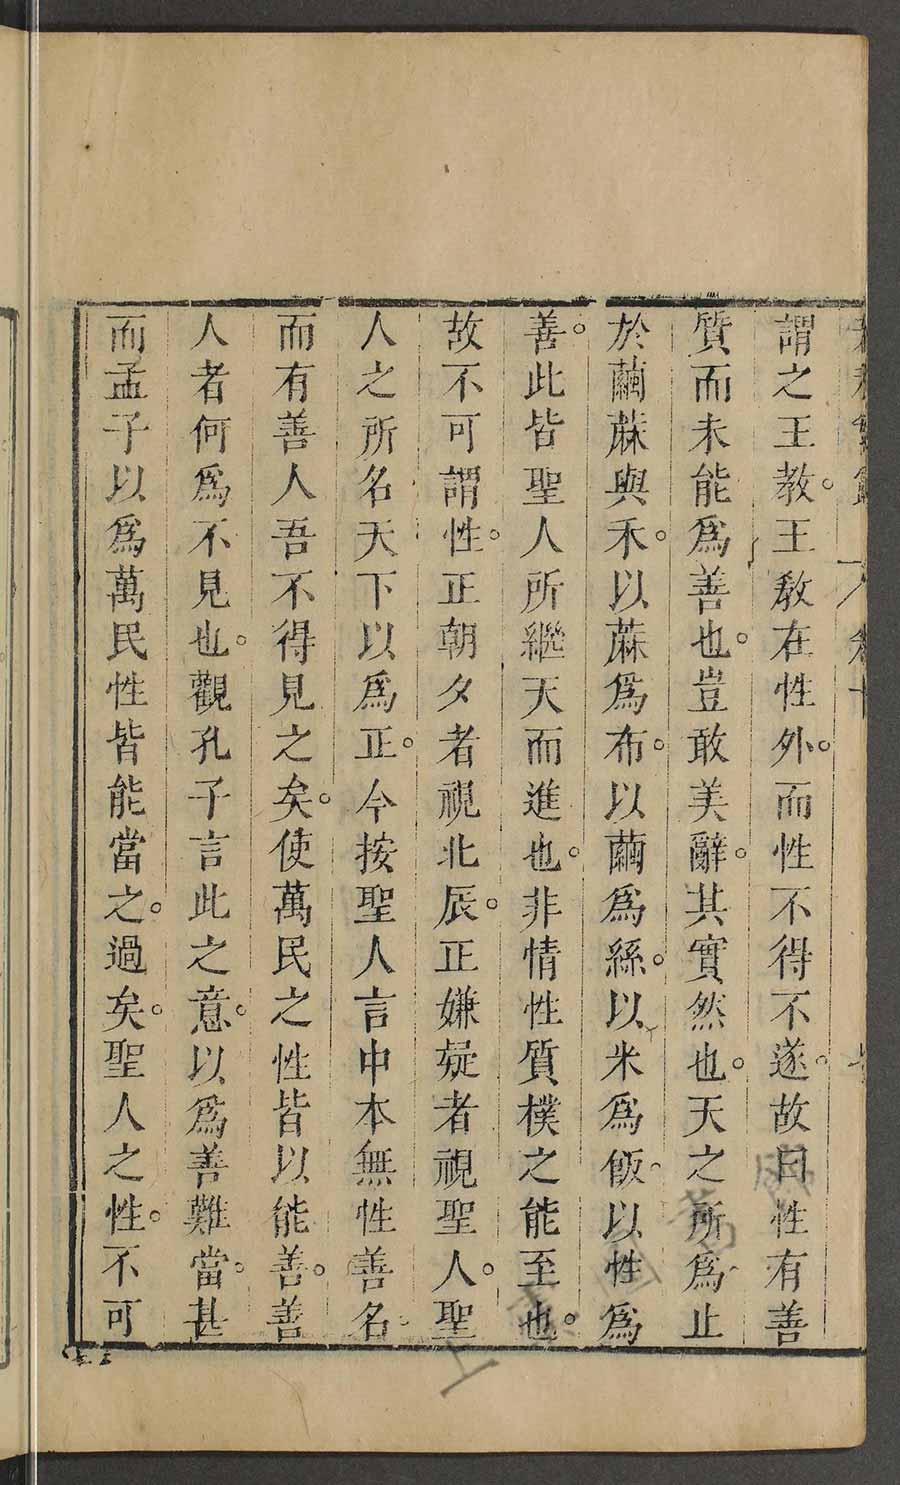 謂之王教。王教在性外。而性不得不遂。故曰性有善
質而未能爲善也。豈敢美辭。其實然也。天之所爲止
於繭蔴與禾。以蔴爲布。以繭爲絲。以米爲飯。以性爲
善。此皆聖人所繼天而進也。非情性質樸之能至也。
故不可謂性。正朝夕者視北辰。正嫌疑者視聖人。聖
人之所名天下以爲正。今按聖人言中本無性善名。
而有善人吾不得見之矣。使萬民之性皆以能善。善
人者何爲不見也。觀孔子言此之意。以爲善難當。甚
而孟子以爲萬民性皆能當之。過矣。聖人之性。不可